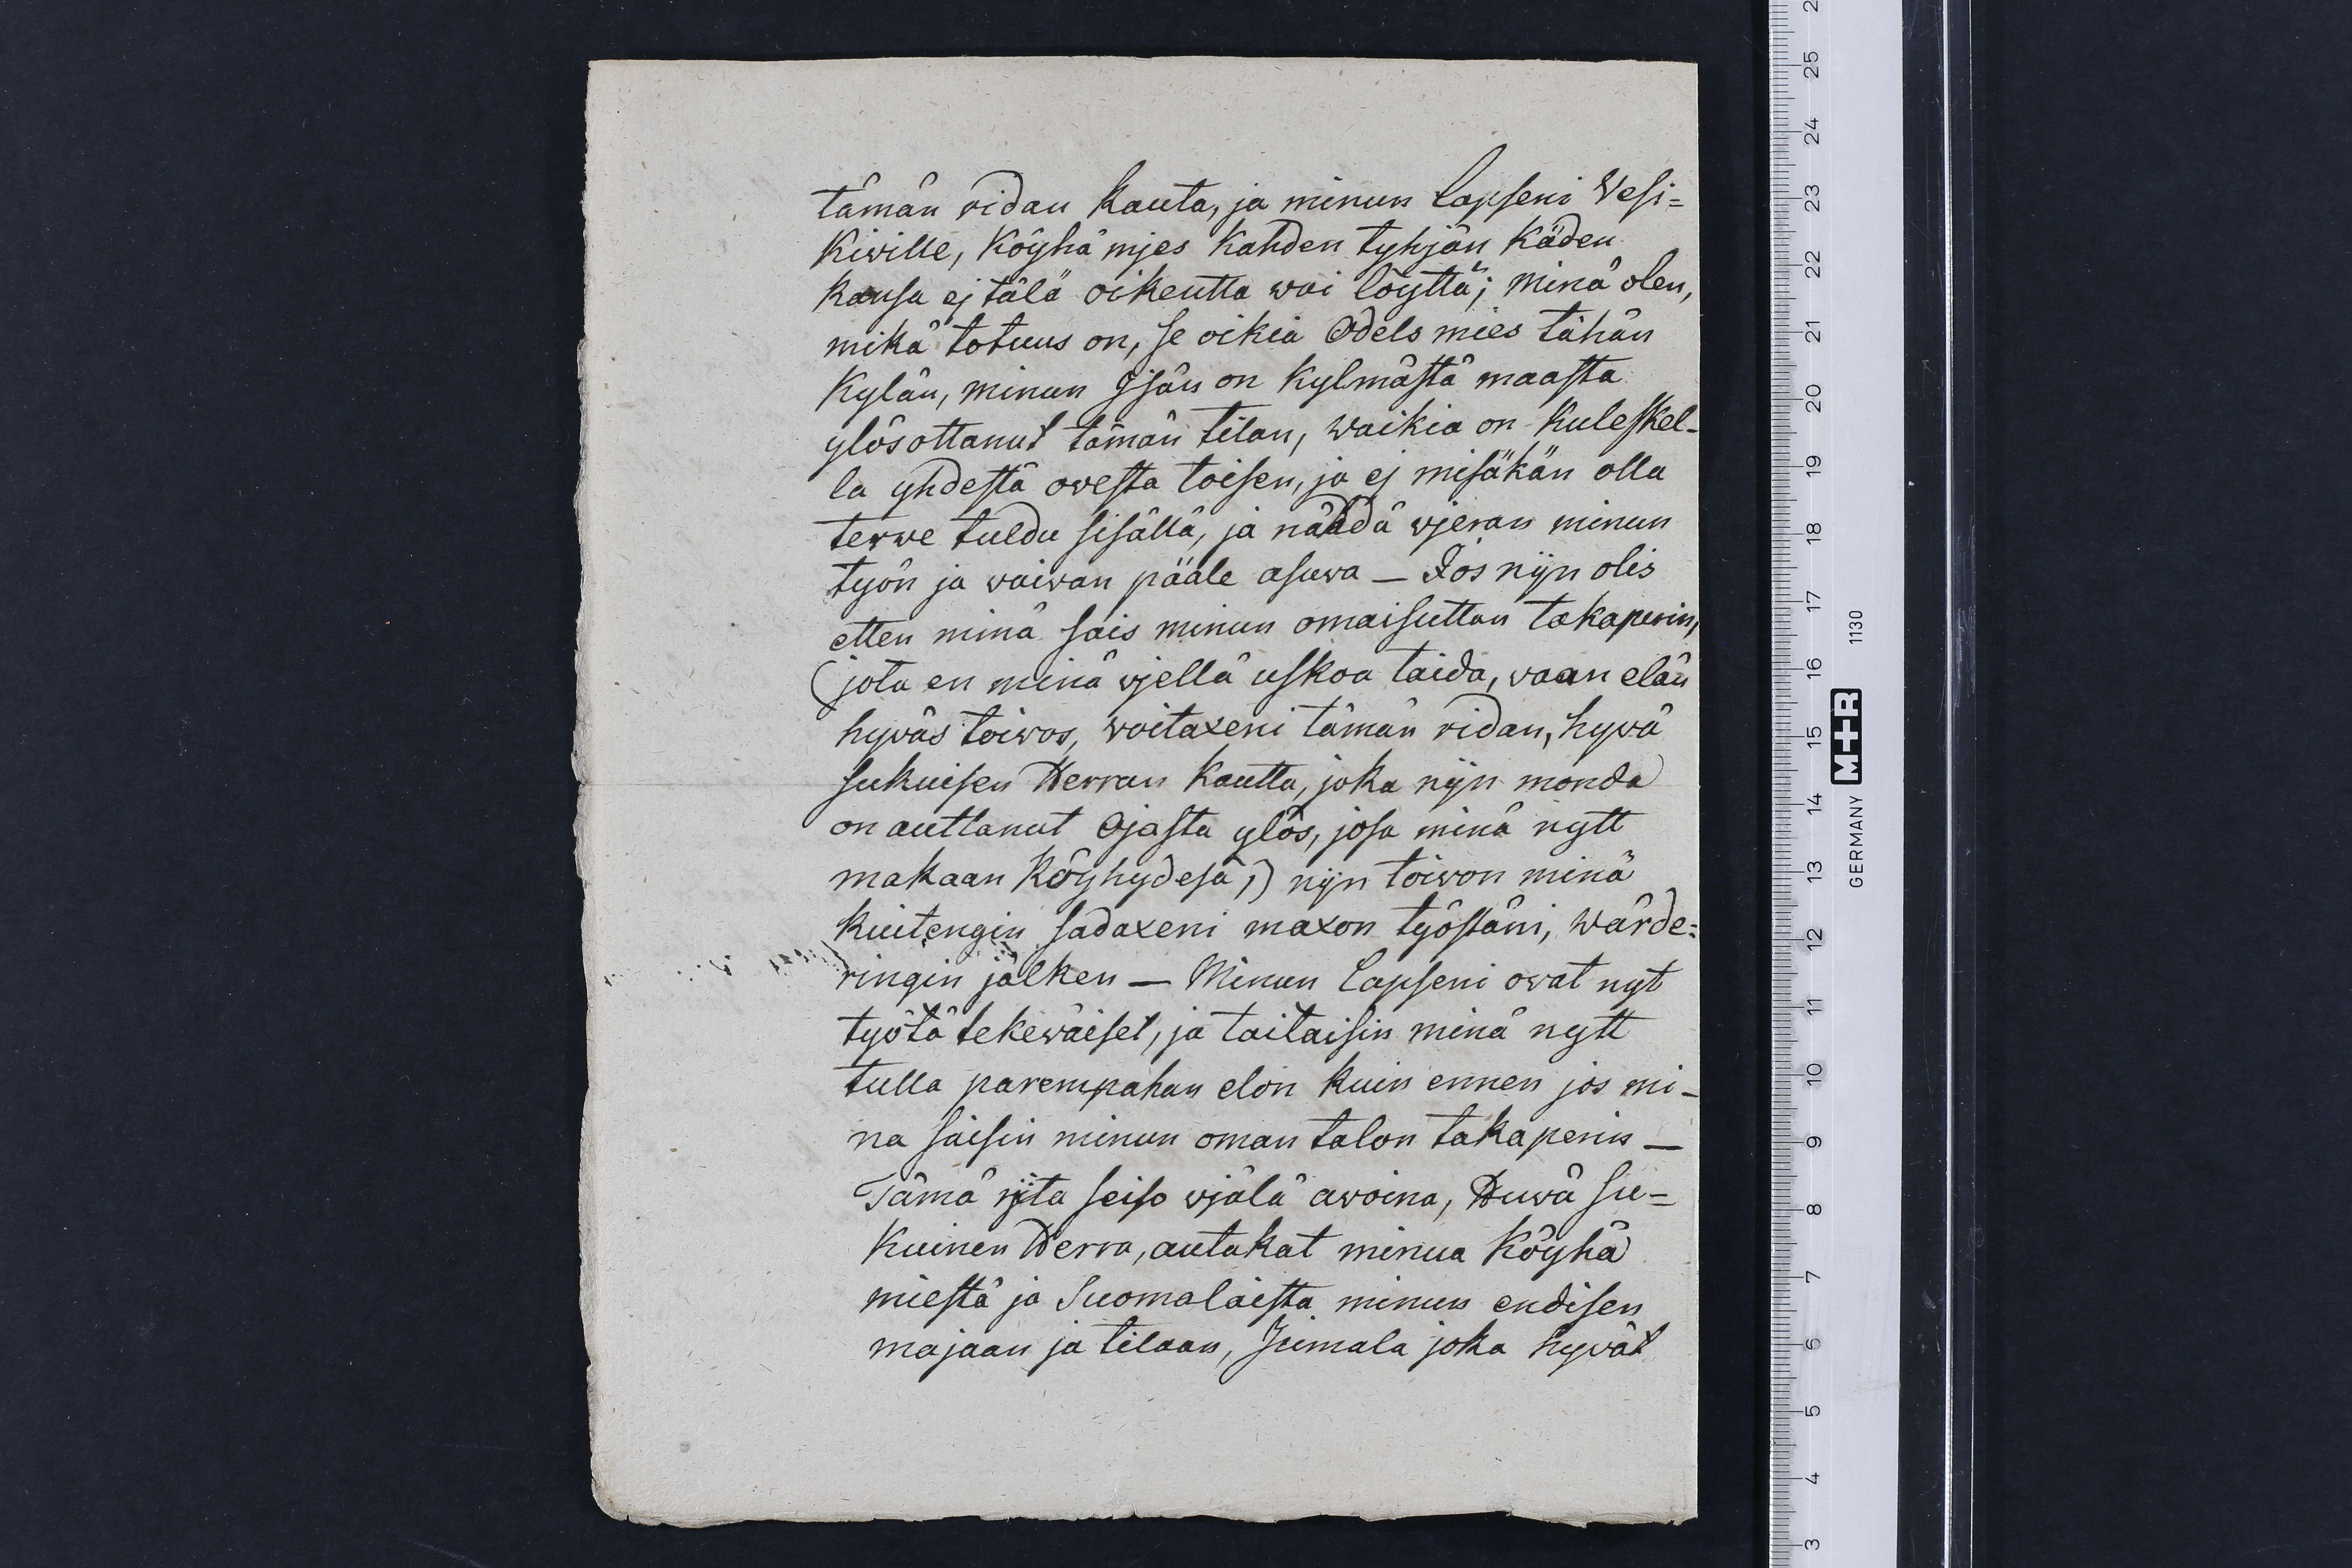 tämän ridan kauta, ja minun Lapseni Vesi=
kiville, Köyhä mjes kahden tyhjän käden
kansa ej tälä oikeutta woi löyttä; minä olen,
mikä totuus on, se oikia Odels mies tähän
kylän, minun Isän on kylmästä maasta
ylösottanut tämän tilan, waikia on kuleskel-
la yhdestä owesta toisen, ja ej misäkän olla
terwe tuldu sisällä, ja nähdä wjeran minun
työn ja waiwan pääle asuwa — Jos nijn olis
etten minä sais minun omaisuttan takaperin,
(jota en minä wjellä uskoa taida, waan elän
hywäs toiwos, woitaxeni tämän ridan, hywä
sukuisen Herran kautta, joka nijn monda
on auttanut Ojasta ylös, josa minä nytt
makaan köyhydesä;) nijn toiwon minä
kuitengin sadaxeni maxon työstäni, wärde=
ringin jälken — Minun Lapseni owat nyt
työtä tekewäiset, ja taitaisin minä nytt
tulla parempahan elon kuin ennen jos mi-
na saisin minun oman talon takaperin —
Tämä rjta seiso wjälä awoina, Huwä su=
kuinen Herra, autakat minua köyhä
miestä ja Suomalaista minun endisen
majaan ja tilaan, Jumala joka hywät
25
24
23
22
21
20
19
18
17
16
15
14
13
12
11
10
9
8
7
6
5
4
3
GERMANY M+R 1130